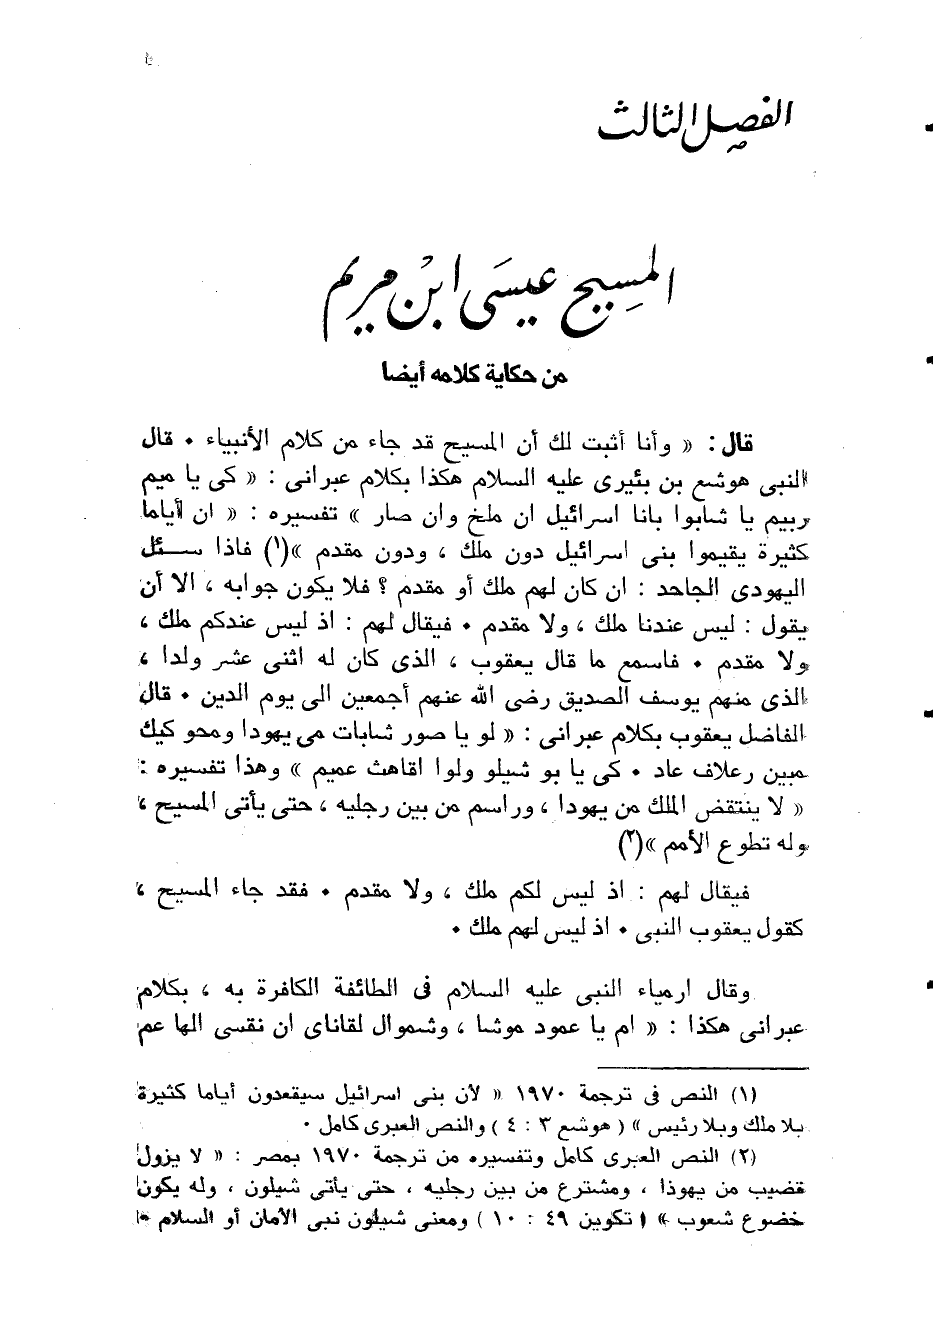 الفصل الثالث
المسيح عيسى ابن مريم
من حكاية كلامه أيضا
قال : « وأنا أثبت لك أن المسيح قد جاء من كلام الأنبياء • قال
النبى هوشع بن بئيرى عليه السلام هكذا بكلام عبرانى : « كى يا ميم
ربيم يا شابوا بانا اسرائيل ان ملخ وان صار » تفسيره : « ان أياما
كثيرة يقيموا بنى اسرائيل دون ملك ، ودون مقدم »(١) فاذا سئل
اليهودى الجاحد : ان كان لهم ملك أو مقدم ؟ فلا يكون جوابه ، الا أن
يقول : ليس عندنا ملك ، ولا مقدم • فيقال لهم : اذ ليس عندكم ملك ،
ولا مقدم • فاسمع ما قال يعقوب ، الذى كان له اثنى عشر ولدا ،
الذى منهم يوسف الصديق رضى الله عنهم أجمعين الى يوم الدين • قال
الفاضل يعقوب بكلام عبرانى : « لو يا صور شابات مى يهودا ومحو كيك
مبين رعلاف عاد • كى يا بو شيلو ولوا اقاهث عميم » وهذا تفسيره :
« لا ينتقض الملك من يهودا ، وراسم من بين رجليه ، حتى يأتى المسيح ،
وله تطوع الأمم »(٢)
فيقال لهم : اذ ليس لكم ملك ، ولا مقدم • فقد جاء المسيح ،
كقول يعقوب النبى • اذ ليس لهم ملك •
وقال ارمياء النبى عليه السلام فى الطائفة الكافرة به ، بكلام
عبرانى هكذا : « ام يا عمود موشا ، وشموال لقاناى ان نقسى الها عم
(١) النص فى ترجمة ١٩٧٠ « لأن بنى اسرائيل سيقعدون أياما كثيرة
بلا ملك وبلا رئيس » ( هوشع ٣ : ٤ ) والنص العبرى كامل •
(٢) النص العبرى كامل وتفسيره من ترجمة ١٩٧٠ بمصر : « لا يزول
قضيب من يهوذا ، ومشترع من بين رجليه ، حتى يأتى شيلون ، وله يكون
خضوع شعوب » ( تكوين ٤٩ : ١٠ ) ومعنى شيلون نبى الأمان أو السلام •